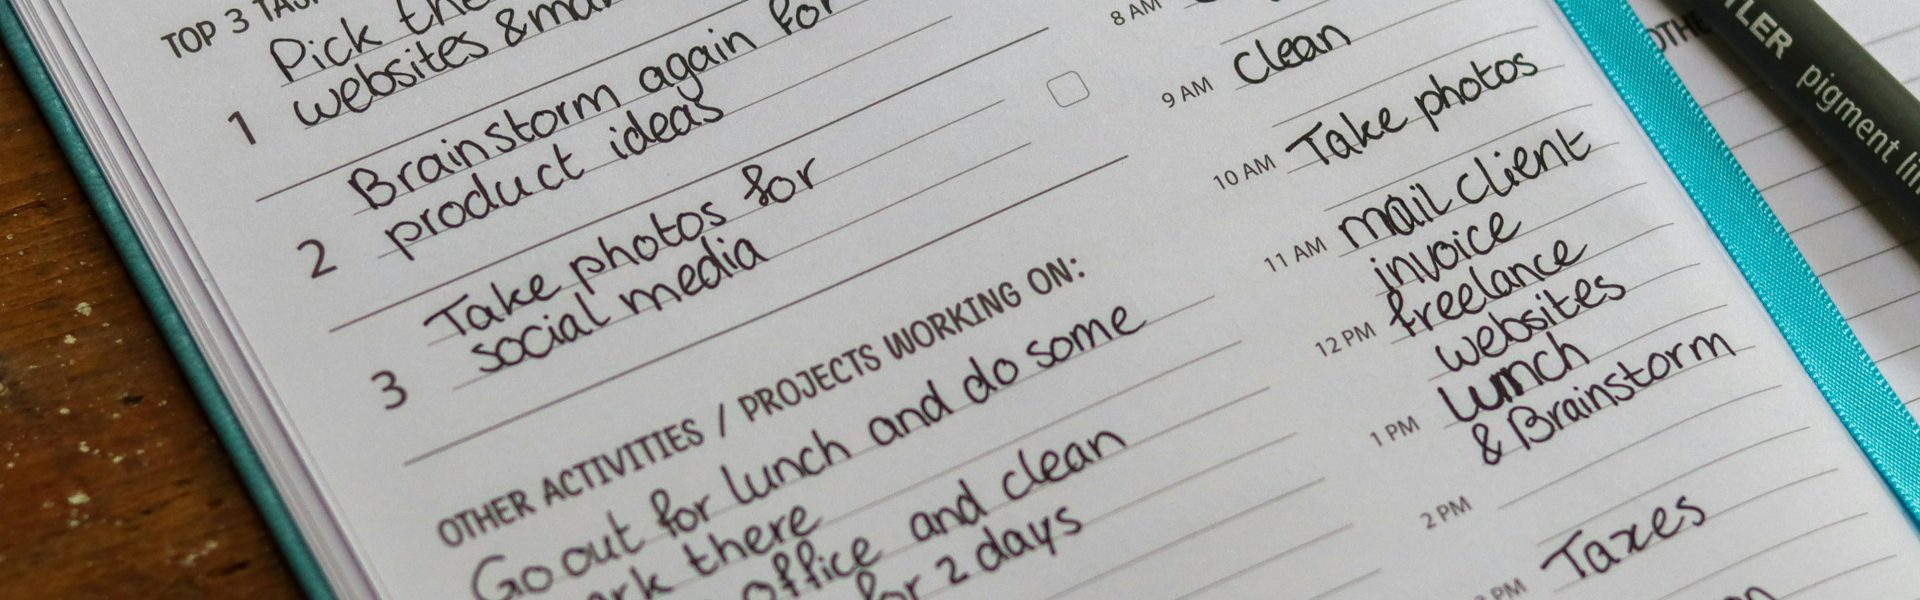 TOP 3
Pick
websites &
1
Brainstorm again for
product ideas
2
Take photos for
social media
3
OTHER ACTIVITIES / PROJECTS WORKING ON:
Go out for lunch and do some
there
office and clean
for 2 days
8 AM
9 AM
clean
10 AM
Take photos
11 AM
mail client
invoice
12 PM
freelance
websites
1 PM
lunch
& Brainstorm
2 PM
Taxes
PM
pigment